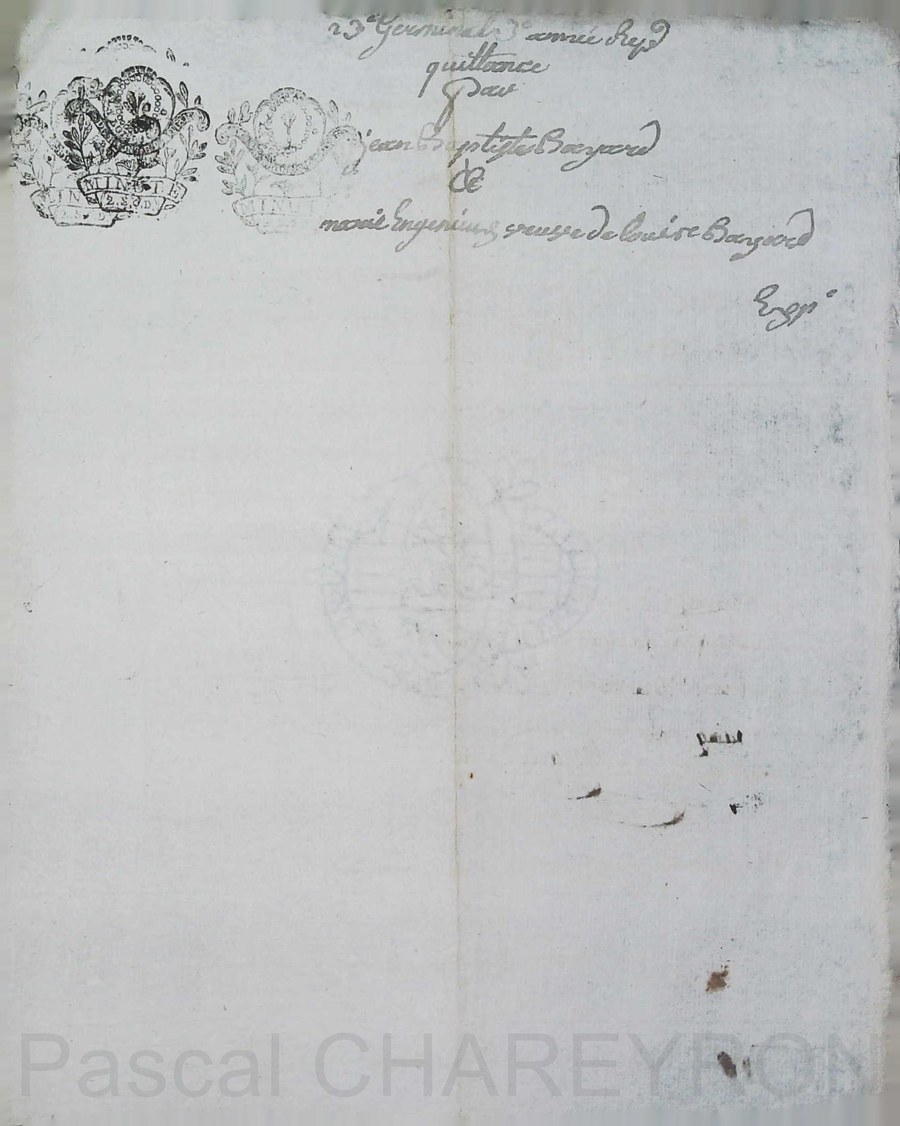 23e Germinal 3e année Rep
quittance
Par
jean Baptiste Bayard
&
marie Engenin veuve de Louise Bayard
Exp
MINUTE
2.S.
MIN
Pascal CHAREYRON